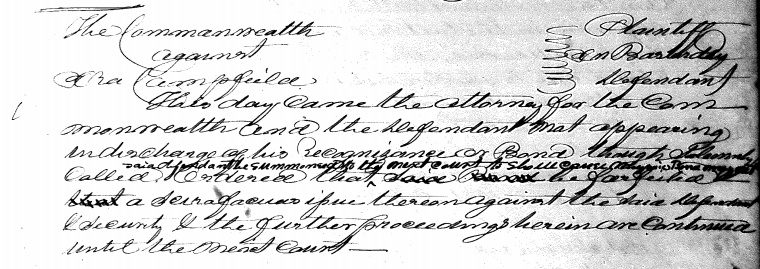 The Commonwealth Plaintiff
against On Bastardy
Ira Campfield Defendant
This day came the attorney for the Com
monwealth and the Defendant not appearing
in discharge of his recognizance or Bond though Solemnly
said defendant be summoned to the next court to shew cause why his Bond may not
called. Ordered that be forfeited
a Scirafacias issue thereon against the said defendant
& security & the further proceedings herein are Continued
until the next Court